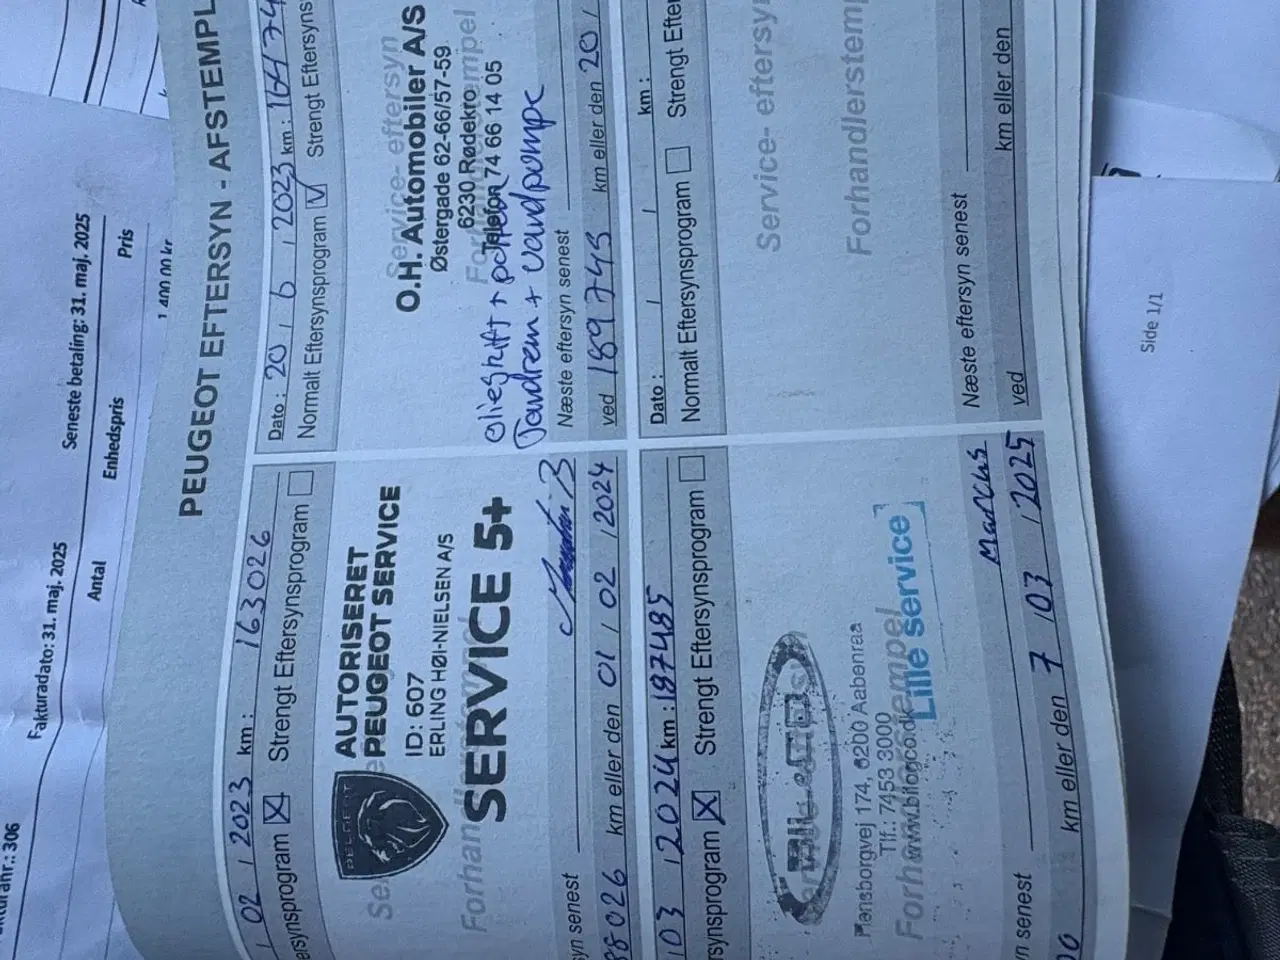 PEUGEOT EFTERSYN - AFSTEMPL
02 / 2023 km: 163026
ersynsprogram ☒ Strengt Eftersynsprogram ☐
AUTORISERET
PEUGEOT SERVICE
ID: 607
ERLING HØI-NIELSEN A/S
SERVICE 5+
PEUGEOT
yn senest
8026 km eller den 01 / 02 / 2024
Dato: 20 / 6 / 2023 km: 16474
Normalt Eftersynsprogram ☑ Strengt Eftersyns
Service- eftersyn
O.H. Automobiler A/S
Østergade 62-66/57-59
6230 Rødekro
Telefon 74 66 14 05
olieskift + pollen
Tandrem + vandpompe
Næste eftersyn senest
ved 189745 km eller den 20 /
/ 03 / 2024 km: 187485
ersynsprogram ☒ Strengt Eftersynsprogram ☐
Flensborgvej 174, 6200 Aabenraa
Tlf.: 7453 3000
www.bilogco.dk
Lille service
Marcus
n senest
00 km eller den 7 / 03 / 2025
Dato: / / km:
Normalt Eftersynsprogram ☐ Strengt Efter
Service- eftersyn
Forhandlerstemp
Næste eftersyn senest
ved km eller den
306
Fakturadato: 31. maj. 2025
Seneste betaling: 31. maj. 2025
Antal Enhedspris Pris
1.400,00 kr
Side 1/1